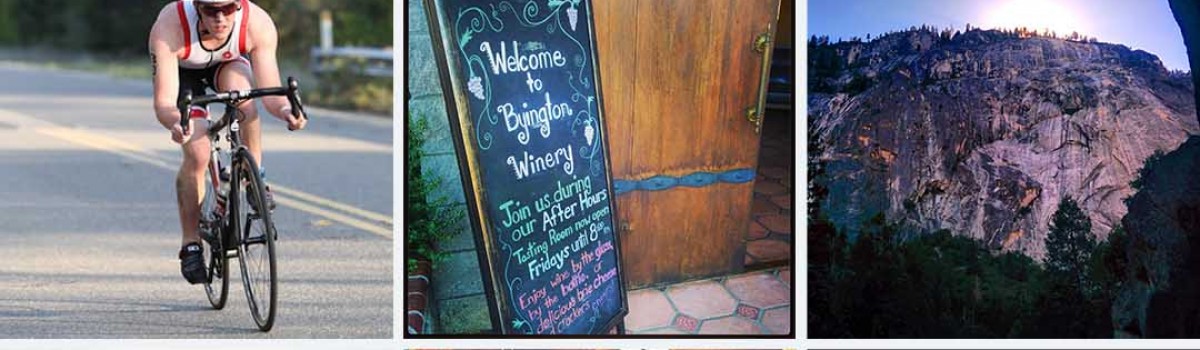 Welcome
to
Byington
Winery
Join us during
our After Hours
Tasting Room now open
Fridays until 8pm
Enjoy wine by the glass,
by the bottle, or
delicious brie cheese
crackers